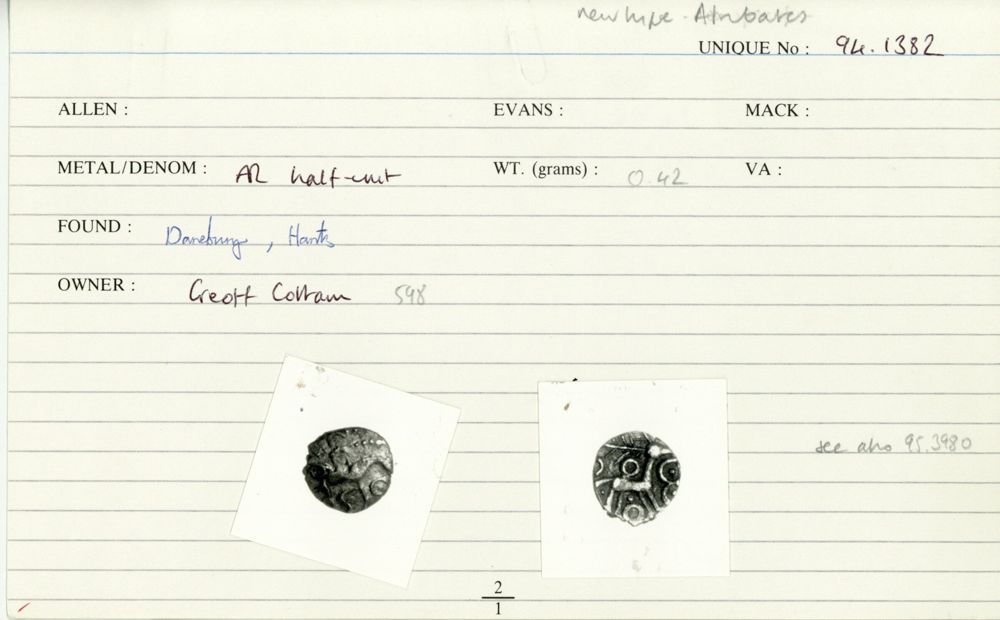 new type - Atrebates
UNIQUE No : 94.1382
ALLEN : EVANS : MACK :
METAL/DENOM : AR half-unit WT. (grams) : 0.42 VA :
FOUND : Danebury , Hants
OWNER : Geoff Cottam 598
see also 95.3980
2
1